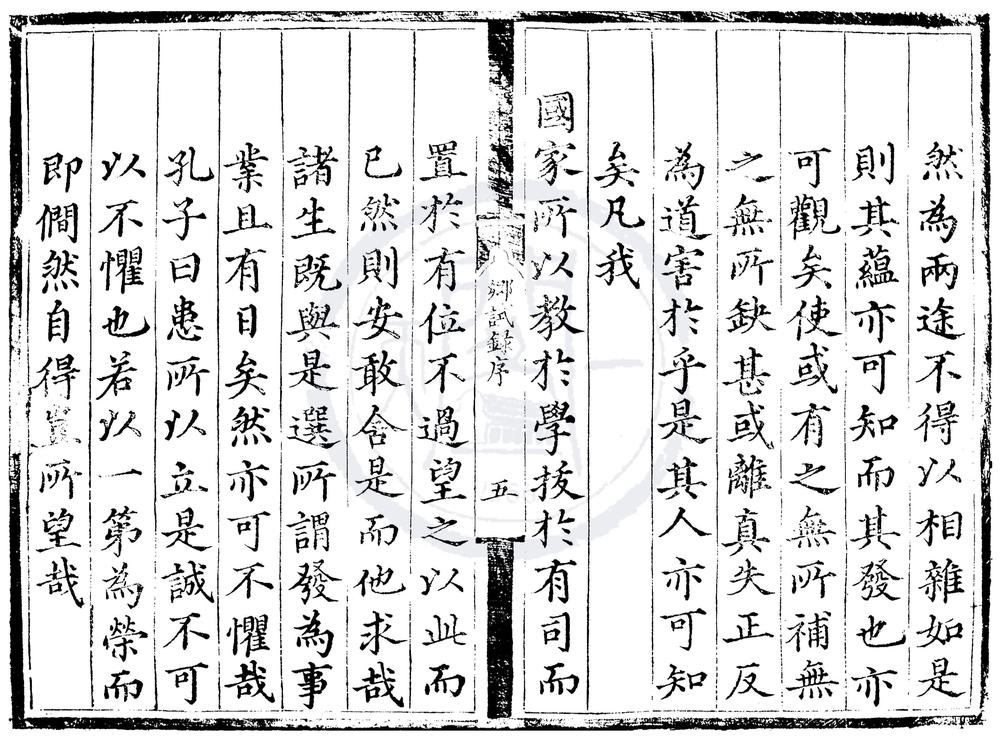 然為兩途不得以相雜如是
則其蘊亦可知而其發也亦
可觀矣使或有之無所補無
之無所缺甚或離真失正反
為道害於乎是其人亦可知
矣凡我
國家所以教於學拔於有司而
鄉試錄序
五
置於有位不過望之以此而
已然則安敢舍是而他求哉
諸生既與是選所謂發為事
業且有日矣然亦可不懼哉
孔子曰患所以立是誠不可
以不懼也若以一第為榮而
即僩然自得豈所望哉